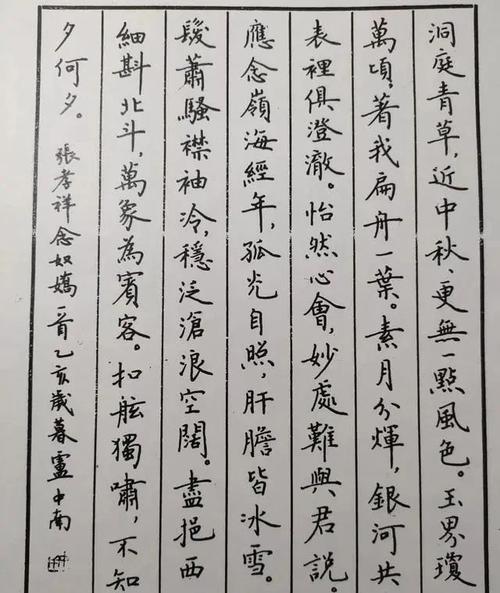 洞庭青草，近中秋、更無一點風色。玉界瓊
萬頃，著我扁舟一葉。素月分輝，銀河共
表裡俱澄澈。怡然心會，妙處難與君説。
應念嶺海經年，孤光自照，肝膽皆冰雪。
髮蕭騷襟袖冷，穩泛滄浪空闊。盡挹西
細斟北斗，萬象為賓客。扣舷獨嘯，不知
夕何夕。張孝祥念奴嬌一首乙亥歲暮盧中南